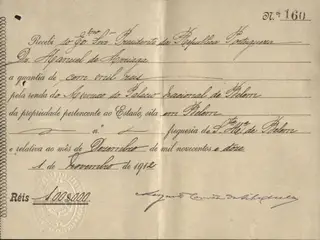 N.º 160
Recebi do Ex.mo Snr. Presidente da Republica Portugueza
Dr. Manuel de Arriaga
a quantia de cem mil reis
pela renda do Annexo do Palacio Nacional de Belem
da propriedade pertencente ao Estado sita em Belem
n.º freguesia de S.ta M.a de Belem
e relativa ao mês de Dezembro de mil novecentos e doze
1 de Novembro de 1912
Réis 100$000